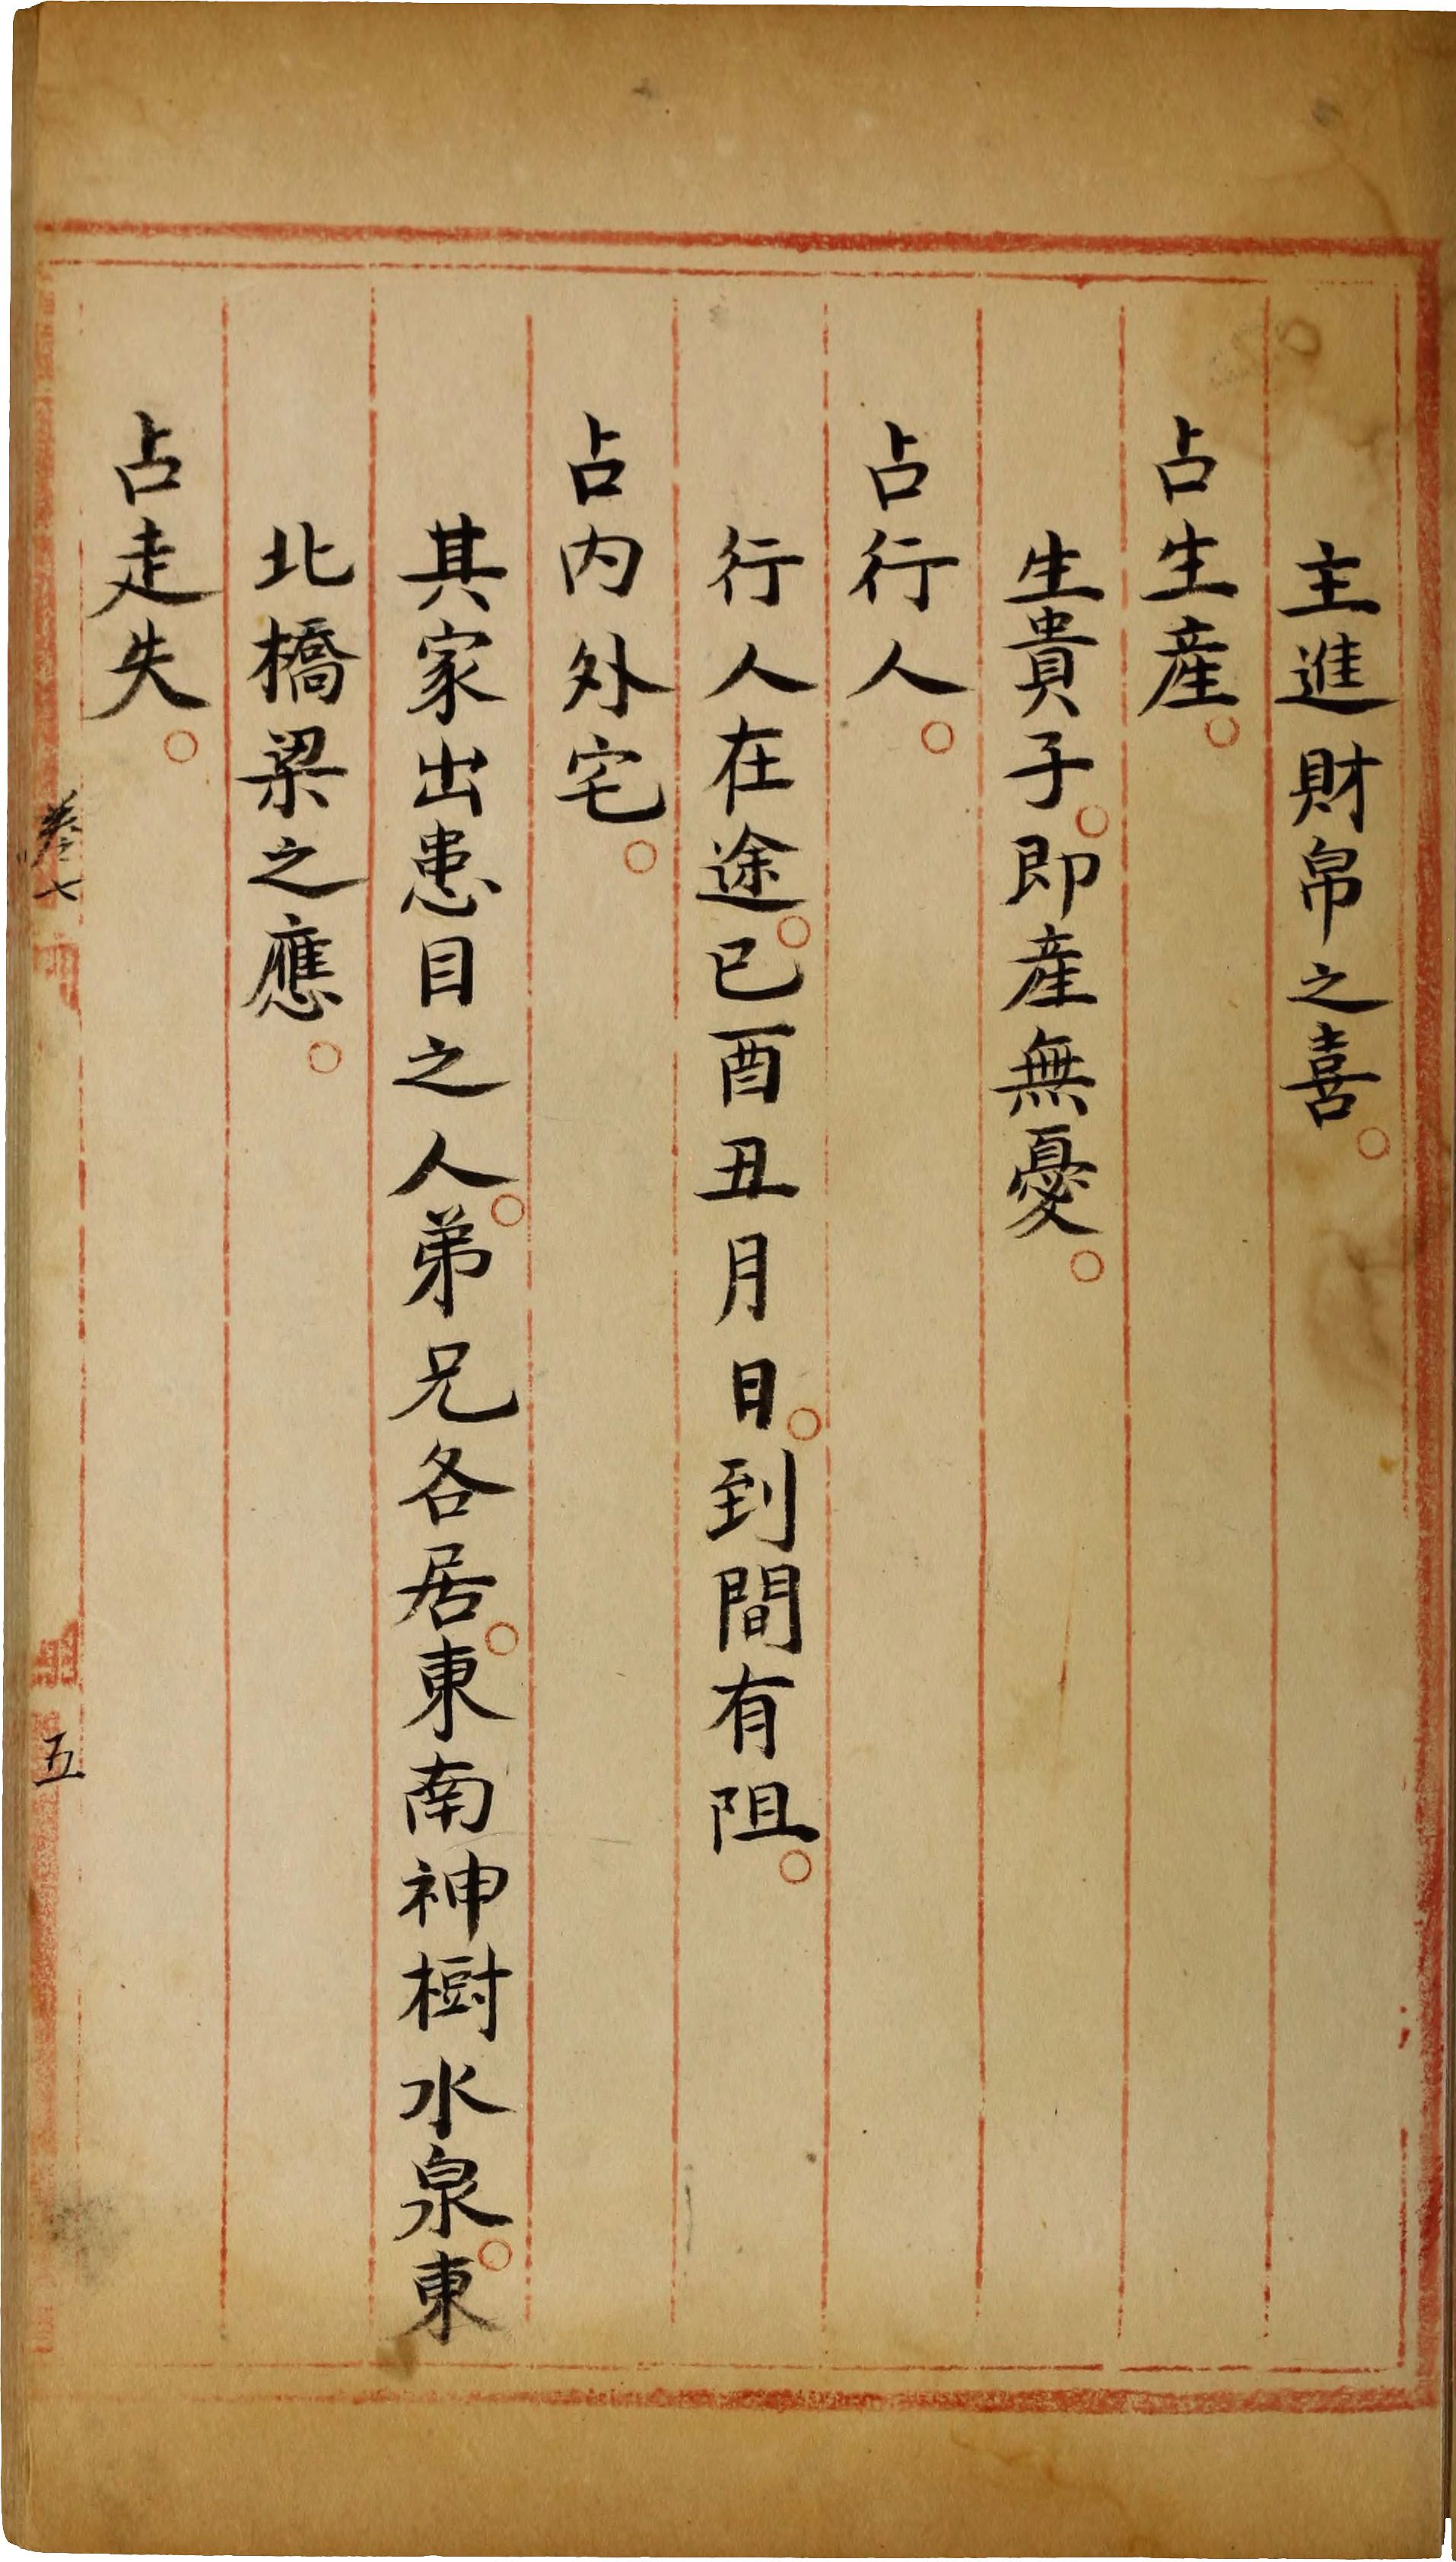 主進財帛之喜。
占生產。
生貴子。即產無憂。
占行人。
行人在途。巳酉丑月日。到間有阻。
占內外宅。
其家出患目之人。弟兄各居。東南神樹水泉。東
北橋梁之應。
占走失。
卷七
五